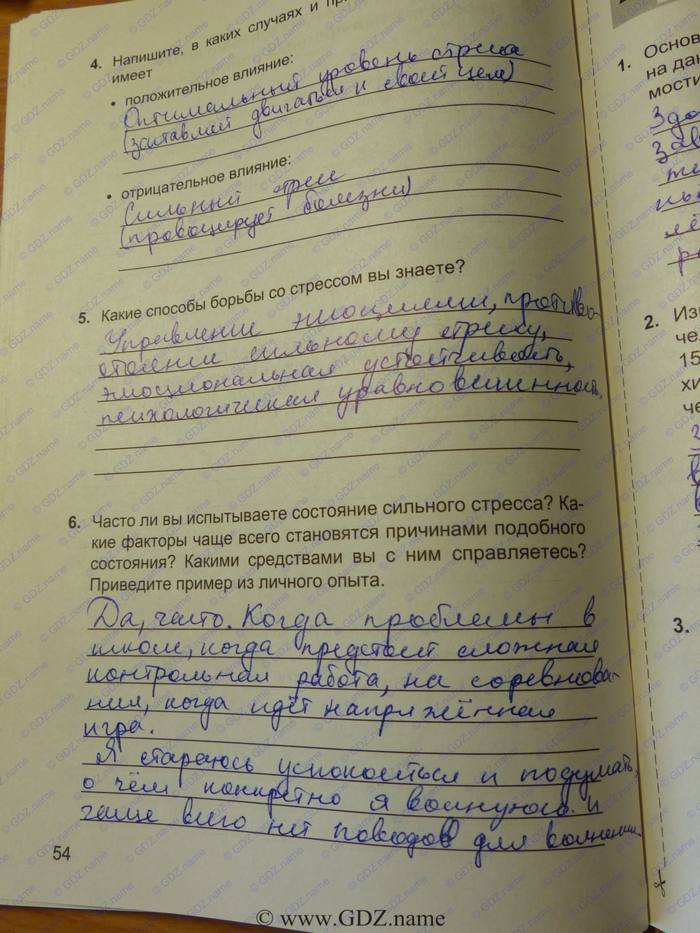 4. Напишите, в каких случаях и
имеет
• положительное влияние:
Оптимальный уровень стресса
(заставляет двигаться к своей цели)
• отрицательное влияние:
Сильный
(провоцирует болезни)
5. Какие способы борьбы со стрессом вы знаете?
Управление эмоциями, противо-
стояние сильному стрессу,
эмоциональная устойчивость,
психологическая уравновешенность.
6. Часто ли вы испытываете состояние сильного стресса? Ка-
кие факторы чаще всего становятся причинами подобного
состояния? Какими средствами вы с ним справляетесь?
Приведите пример из личного опыта.
Да, часто. Когда проблемы в
школе, когда предстоит сложная
контрольная работа, на соревнова-
ния, когда идёт напряжённая
игра.
Я стараюсь успокоиться и подумать,
о чём конкретно я волнуюсь. И
чаще всего нет поводов для волнения.
54
1. Основ
на дан
мости
2.
че
15
хи
че
3.
© www.GDZ.name